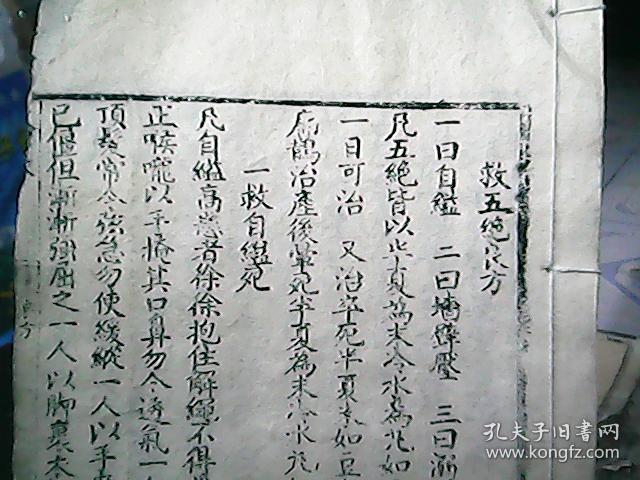 救五絕良方
一曰自縊 二曰墻壁壓 三曰溺
凡五絕皆以半夏為末冷水為丸如
一日可治 又治卒死半夏末如豆
扁鵲治產後暈死半夏為末冷水丸
一救自縊死
凡自縊高懸者徐徐抱住解繩不得
止喉嚨以手掩其口鼻勿令透氣一
頂髮常令弦急勿使緩縱一人以手
已僵但漸漸強屈之一人以脚裹
良方
孔夫子旧书网
kongfz.com